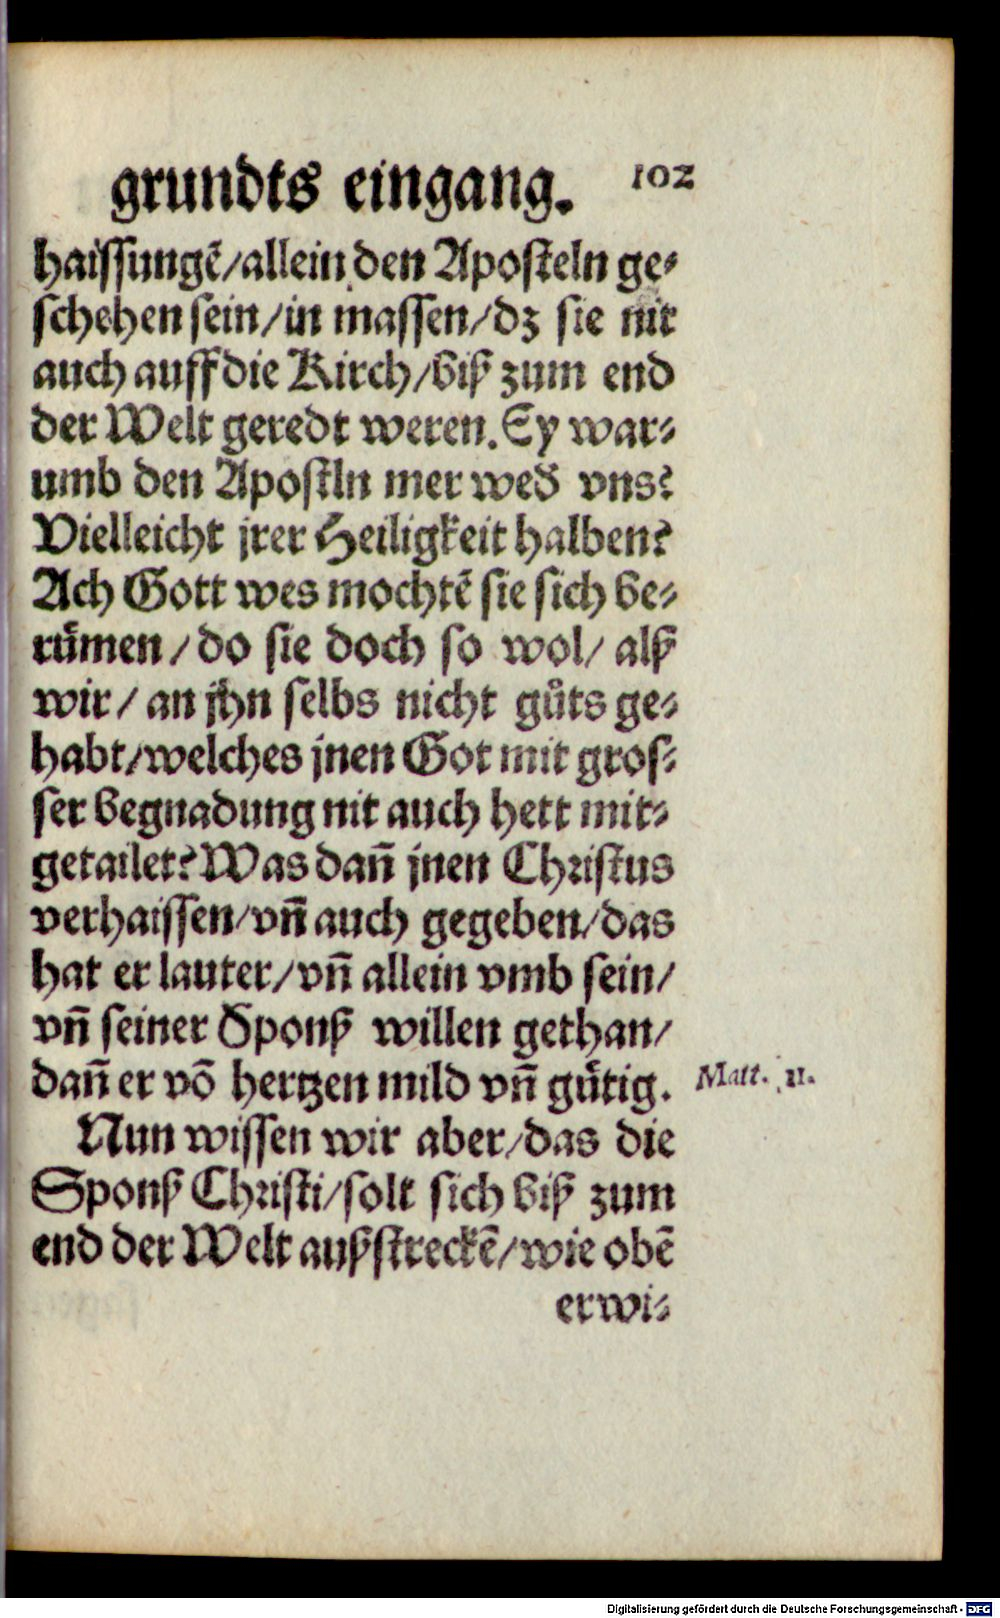 grundts eingang. 102
haissungē/allein den Aposteln ge⸗
schehen sein/in massen/dz sie nit
auch auff die Kirch/biß zum end
der Welt geredt weren. Ey war⸗
umb den Apostln mer wed̄ vns?
Vielleicht jrer Heiligkeit halben?
Ach Gott wes mochtē sie sich be⸗
rümen/do sie doch so wol/ alß
wir/ an jhn selbs nicht gůts ge⸗
habt/welches jnen Got mit gros⸗
ser begnadung nit auch hett mit⸗
getailet? Was dañ jnen Christus
verhaissen/vñ auch gegeben/das
hat er lauter/vñ allein vmb sein/
vñ seiner Sponß willen gethan/
dañ er võ hertzen mild vñ gütig. Matt. 11.
Nun wissen wir aber/das die
Sponß Christi/solt sich biß zum
end der Welt außstreckē/wie obē
erwi⸗
Digitalisierung gefördert durch die Deutsche Forschungsgemeinschaft - DFG